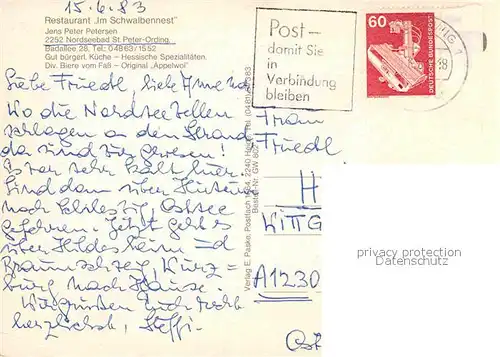 15.6.83
Restaurant „Im Schwalbennest"
Jens Peter Petersen
2252 Nordseebad St. Peter-Ording
Badallee 28, Tel. 04863/1552
Gut bürgerl. Küche – Hessische Spezialitäten.
Div. Biere vom Faß – Original „Appelwoi"
Liebe Friedl, liebe
Wo die Nordseewellen
schlagen an den Strand
da sind wir gewesen!
Es war sehr kalt hier.
Sind dann über Husum
nach Schleswig, Ostsee
gefahren. Jetzt geht es
über Hildesheim
Braunschweig, Würz=
burg nach Hause.
Wir grüßen Euch recht
herzlichst, Steffi.
Verlag E. Paske, Postfach 1564, 2240 Heide, Tel. (0481)
Bestell-Nr. GW 802
Post–
damit Sie
in
Verbindung
bleiben
60
DEUTSCHE BUNDESPOST
Frau
Friedl
H
WITTG
A1230
privacy protection
Datenschutz